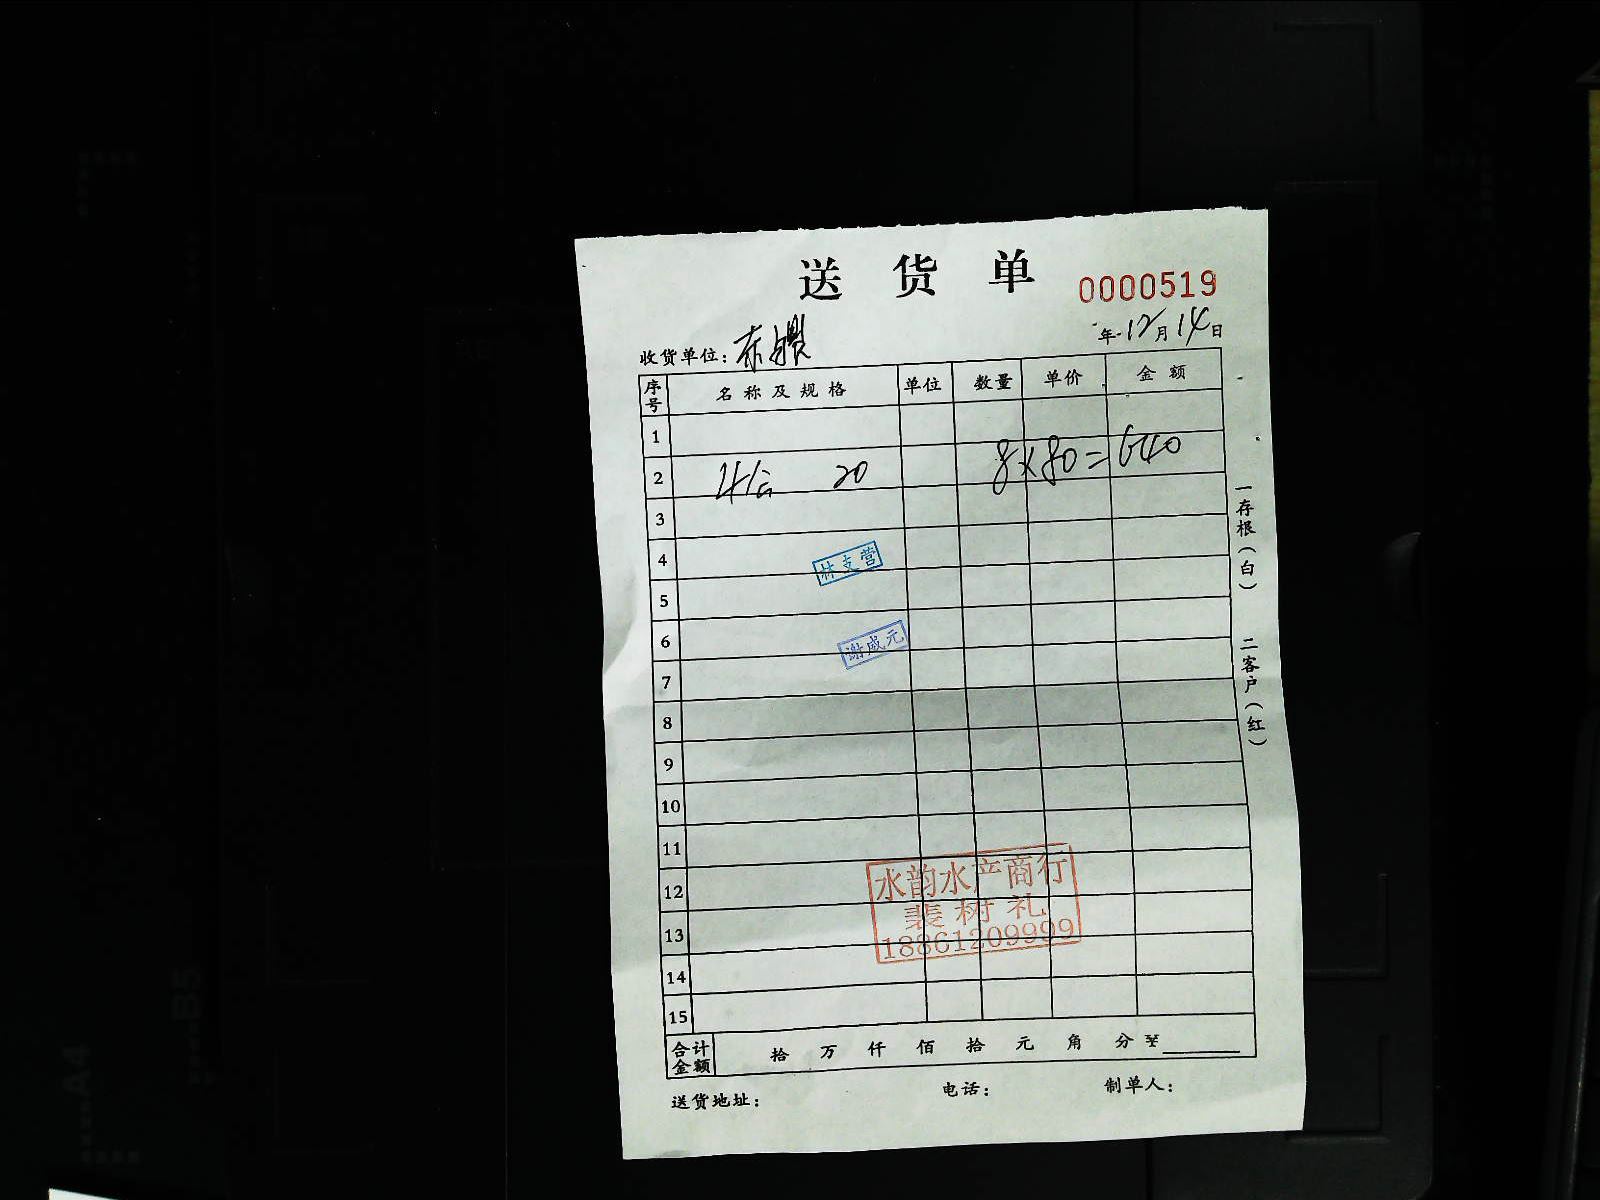 送货单
0000519
年12月14日
收货单位：
序号 名称及规格 单位 数量 单价 金额
1
2 20 8×80=640
3
4
林支营
5
6
谢成元
7
8
9
10
11
12
13
14
15
水韵水产商行
裴树礼
18861209999
合计金额 拾 万 仟 佰 拾 元 角 分 ¥
送货地址： 电话： 制单人：
一存根（白） 二客户（红）
B5
A4